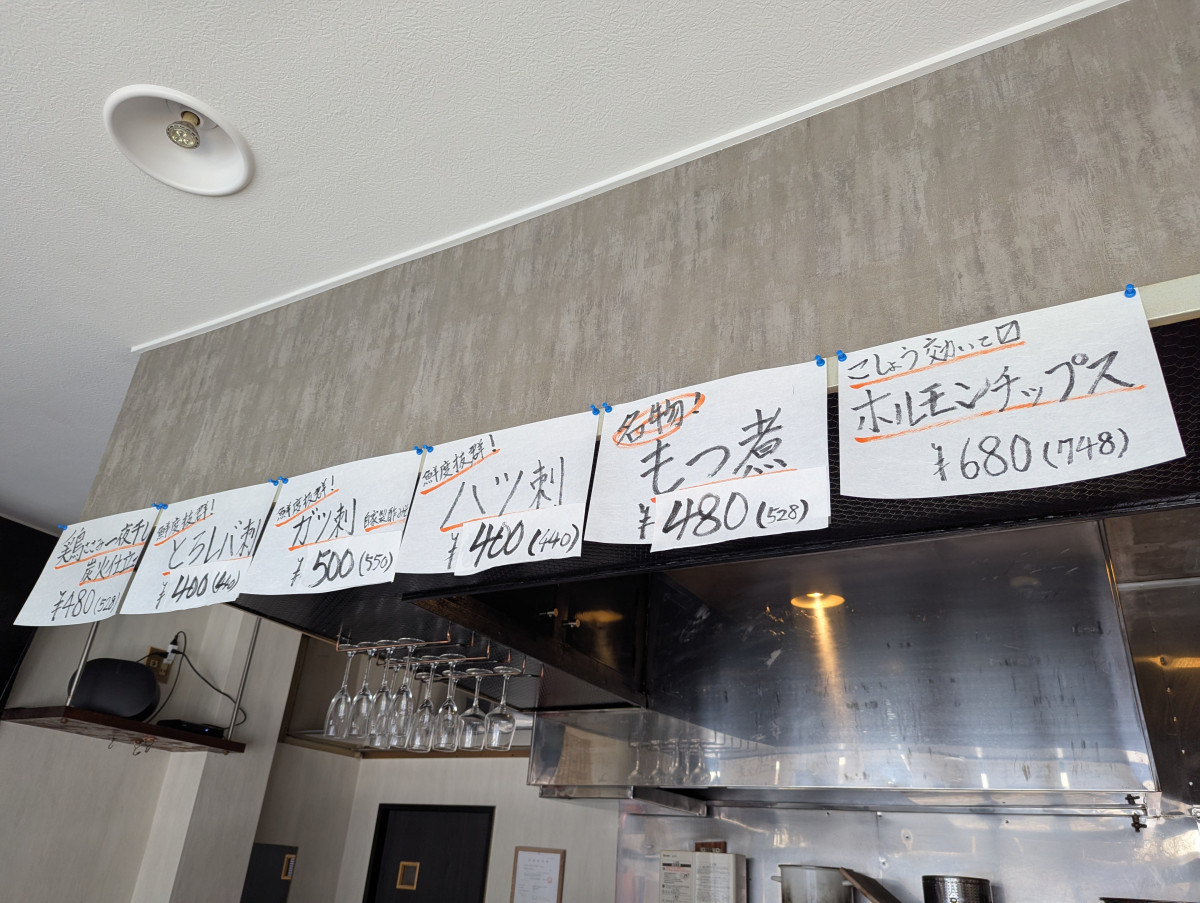 美鳥ささみ一夜干し
炭火仕立
¥480(528)
鮮度抜群!
とろレバ刺
¥400(440)
鮮度抜群!
ガツ刺
¥500(550)
鮮度抜群!
ハツ刺
¥400(440)
名物!
もつ煮
¥480(528)
こしょう効いて〼
ホルモンチップス
¥680(748)